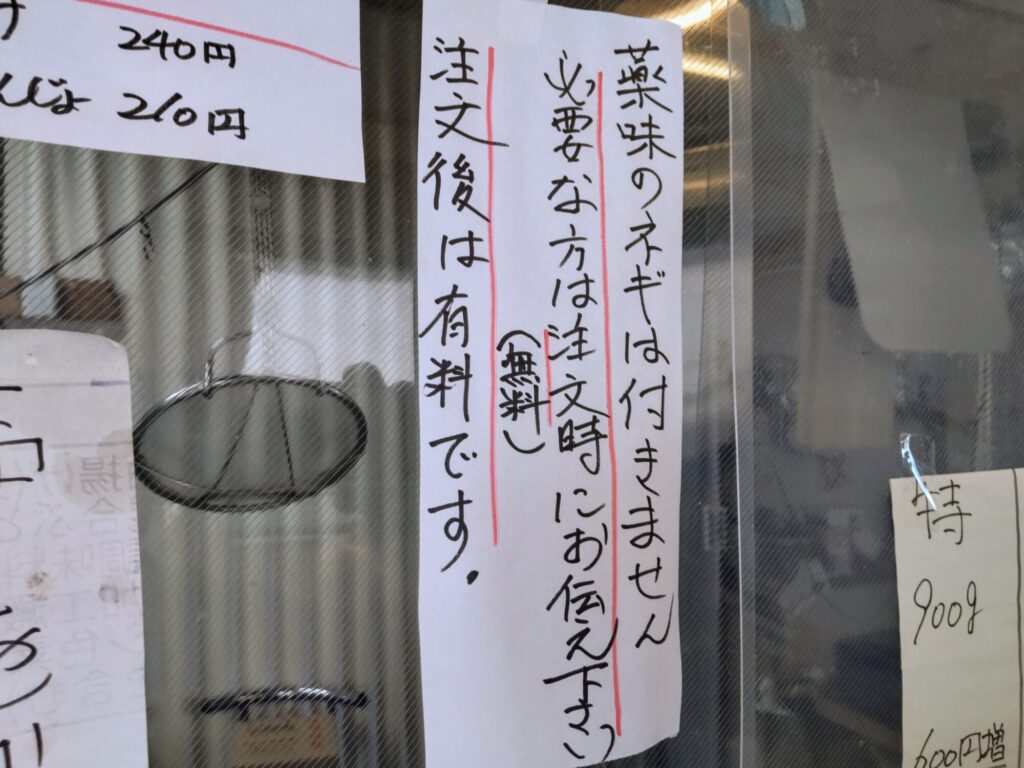 240円
んじょ 210円
薬味のネギは付きません
必要な方は注文時にお伝え下さい
(無料)
注文後は有料です.
特
900g
600円増